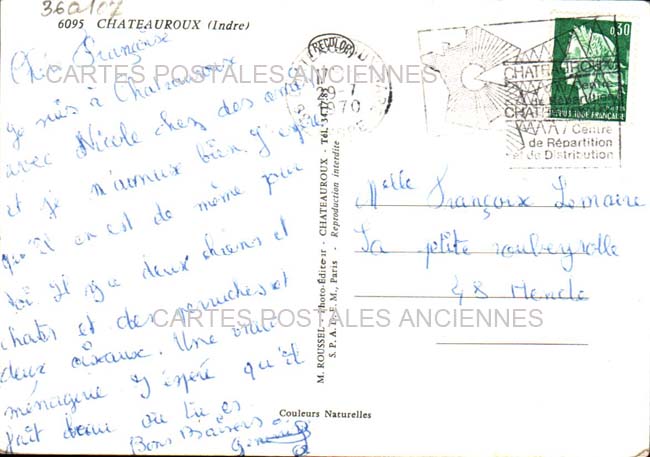 360/07
6095 CHATEAUROUX (Indre)
Chère Françoise
Je suis à Chateauroux
avec Nicole chez des amis
et je m'amuse bien. J'espère
qu'il en est de même pour
toi. Il y a deux chiens et
chats et des perruches et
deux oiseaux. Une vraie
ménagerie J'espère qu'il
fait beau où tu es
Bons Baisers
M. ROUSSEL - Photo-Éditeur - CHATEAUROUX - Tél.
S. P. A. D. E. M., Paris
Reproduction interdite
Couleurs Naturelles
RECOLOR
1970
CHATEAUROUX
Centre
de Répartition
et de Distribution
0,30
Melle Françoise Lemaire
La petite roubeyrolle
48 Mende
CARTES POSTALES ANCIENNES
CARTES POSTALES ANCIENNES